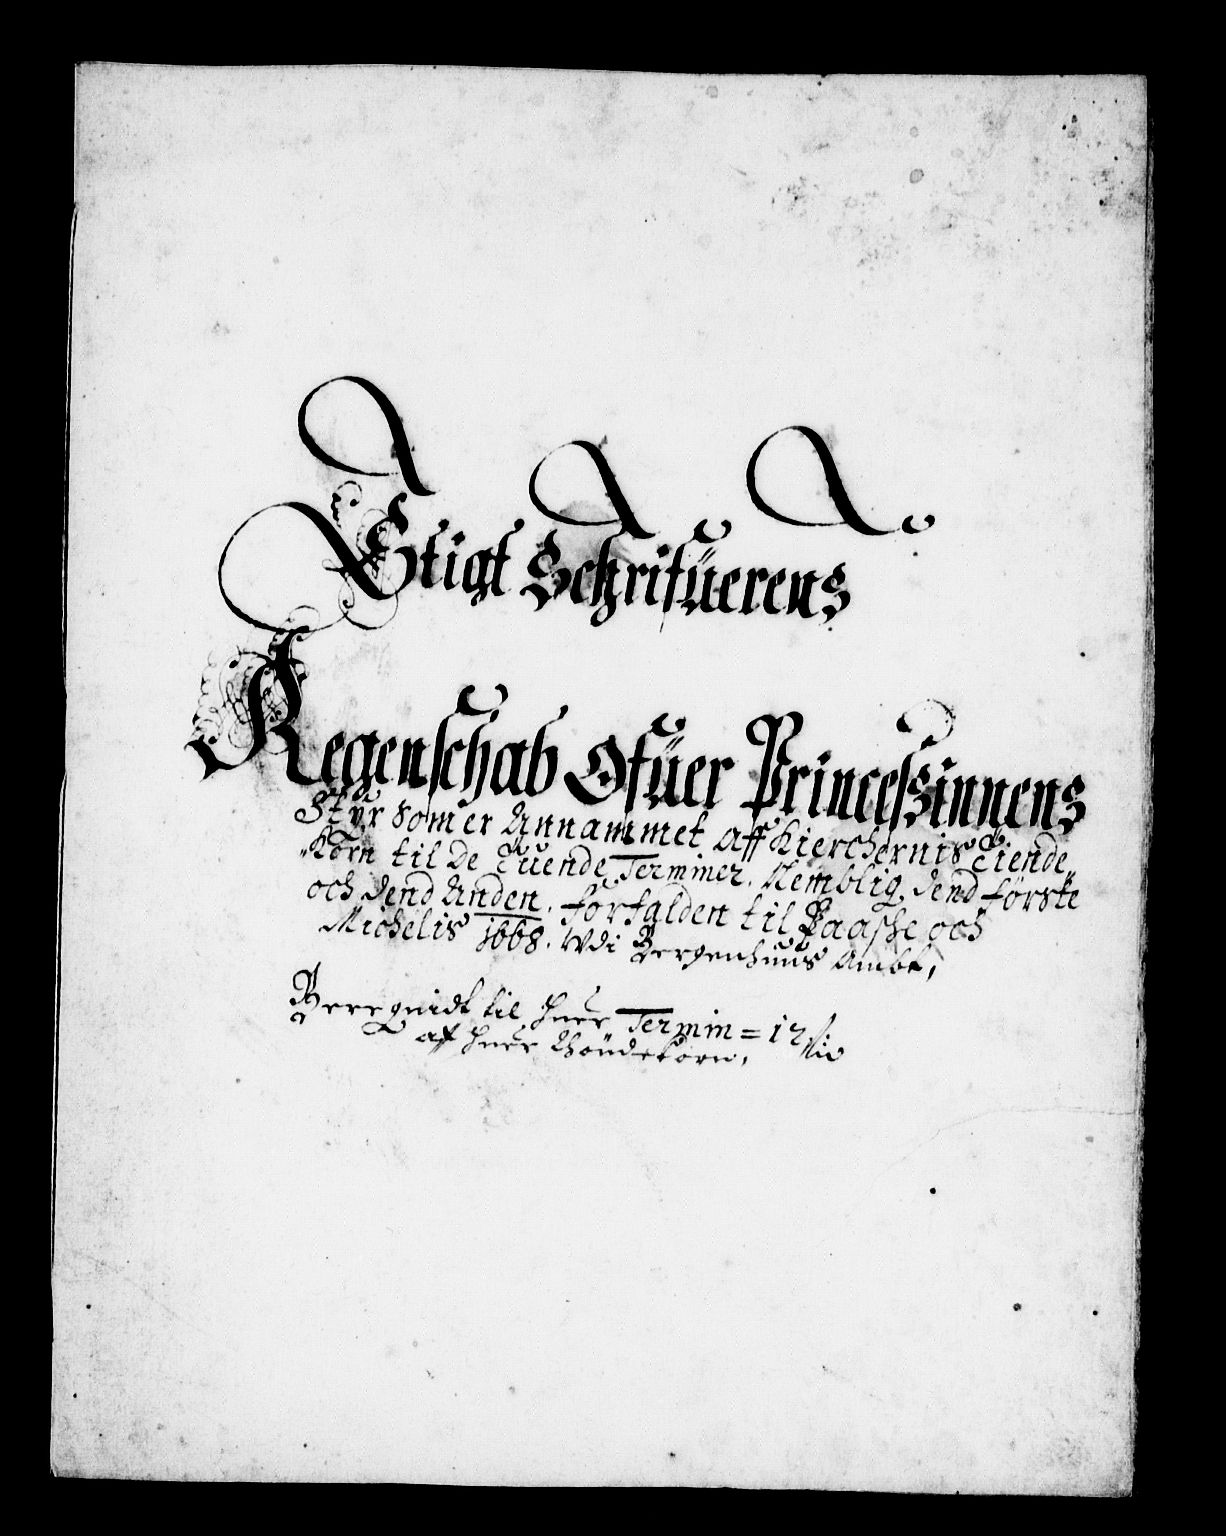 Stigt Schrifuerens
Regenschab Ofuer Princessinnens
Styr som er Annammet aff Kierchernis Tiende
Korn til de Tuende Terminer. Nemblig dend første
och dend Anden. forfalden til Paasche och
Michelis 1668. Wdi Bergenhuus Ambt,
Beregnidt til huer Termin = 12 
aff huer thöndekorn,